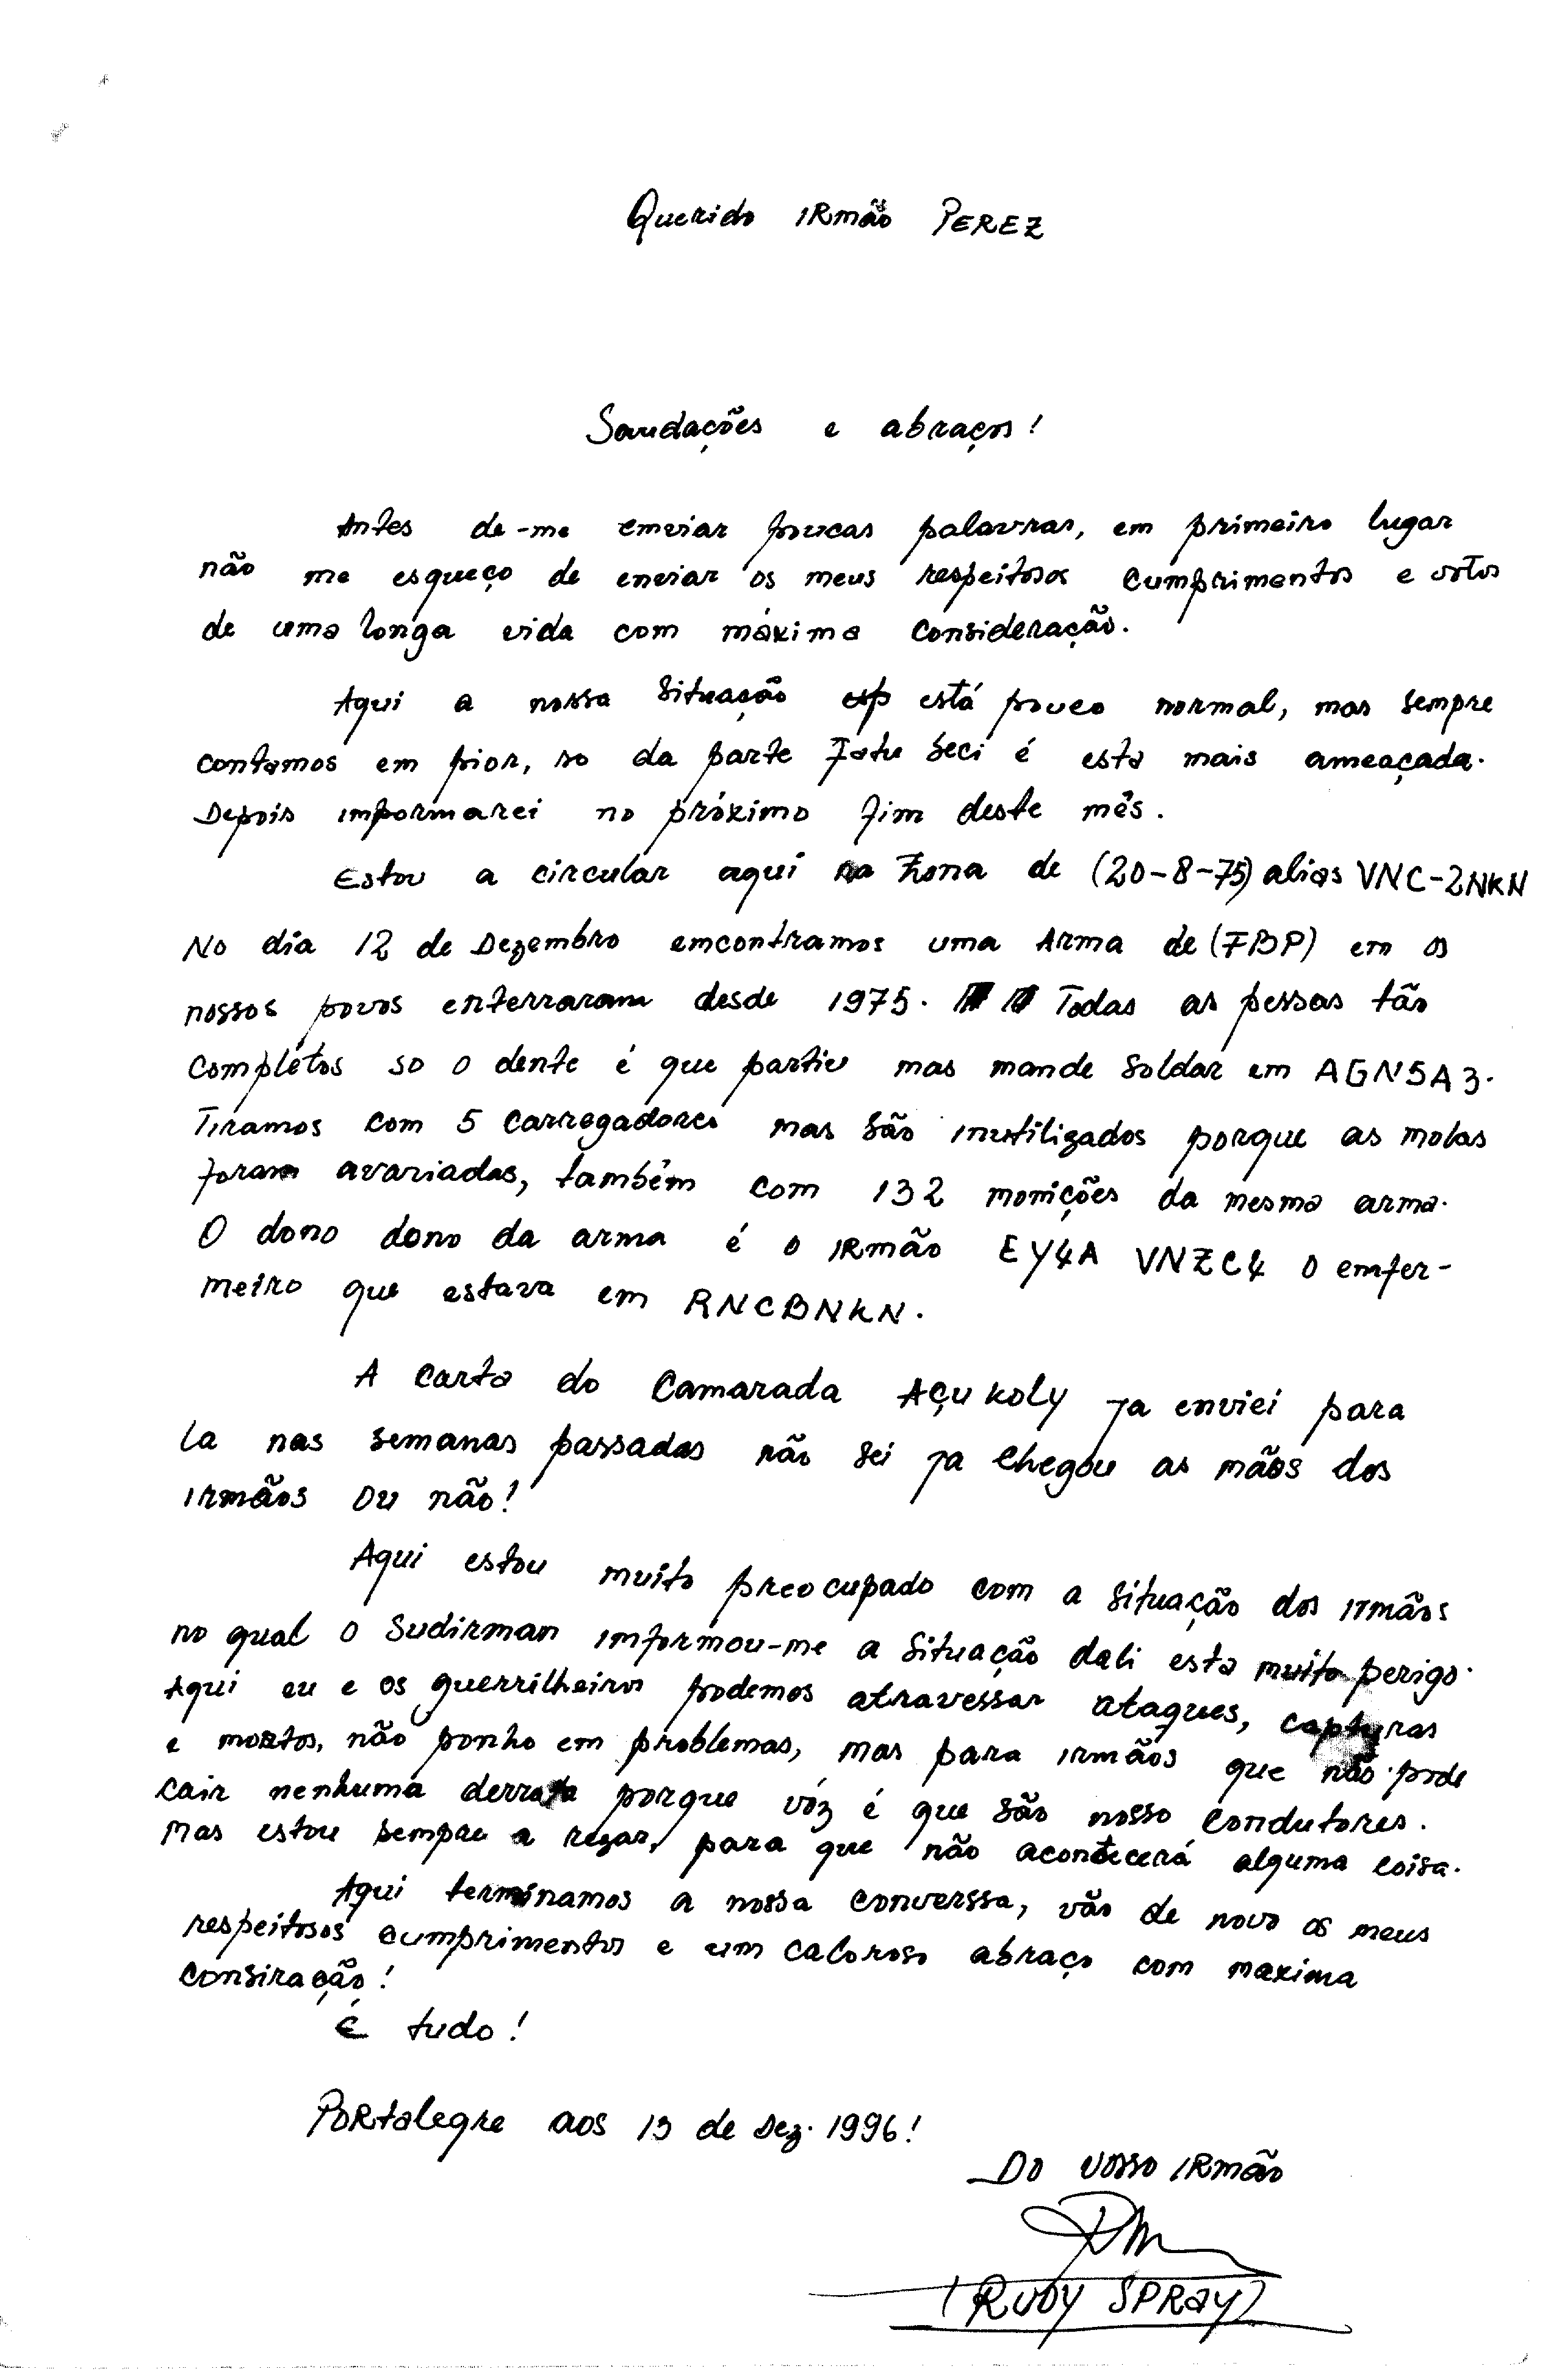 Querido IRmão PEREZ
Saudações e abraços!
Antes de-me emviar poucas palavras, em primeiro lugar
não me esqueço de enviar os meus respeitosos cumprimentos e votos
de uma longa vida com máxima consideração.
Aqui a nossa situação está pouco normal, mas sempre
contamos em pior, so da parte Fatu Beci é esta mais ameaçada.
Depois informarei no próximo fim deste mês.
Estou a circular aqui na Zona de (20-8-75) alias VNC-2NKN
No dia 12 de Dezembro emcontramos uma Arma de (FBP) em os
nossos povos enterraram desde 1975. Todas as pessas tão
complétos so o dente é que partiu mas mande soldar em AGN5A3.
Tiramos com 5 carregadores mas são inutilizados porque as molas
foram avariadas, também com 132 monições da mesma arma.
O dono dono da arma é o IRmão EY4A VNZC4 o emfer-
meiro que estava em RNCBNKN.
A carta do Camarada AÇU KOLY ja enviei para
la nas semanas passadas não sei ja chegou as mãos dos
irmãos ou não!
Aqui estou muito preocupado com a situação dos irmãos
no qual o Sudirman imformou-me a situação dali esta muito perigo.
Aqui eu e os guerrilheiros podemos atravessar ataques, capturas
e mortos, não ponho em problemas, mas para irmãos que não pode
cair nenhuma derrota porque vóz é que são nosso condutores.
Mas estou sempre a rezar, para que não acontecerá alguma coisa.
Aqui terminamos a nossa converssa, vão de novo os meus
respeitosos cumprimentos e um caloroso abraço com maxima
consiração!
É tudo!
PORtalegre aos 13 de Dez. 1996!
DO vosso IRmão
(RUDY SPRAY)